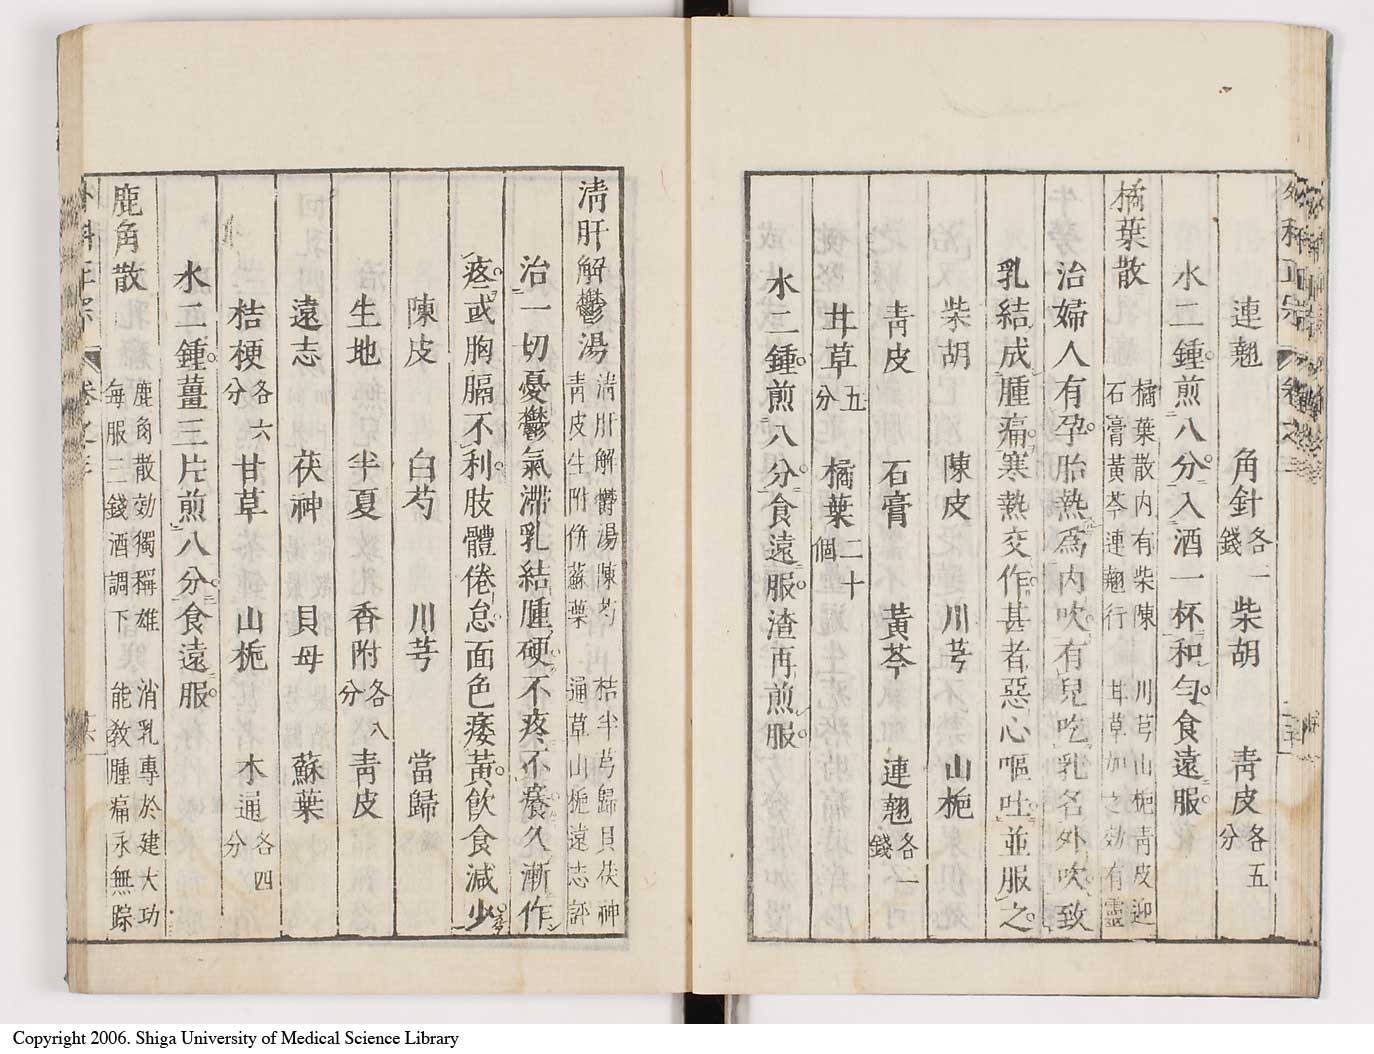 外科正宗 卷之三
連翹 角針各一錢 柴胡 青皮各五分
水二鍾煎八分入酒一杯和勻食遠服
橘葉散 橘葉散內有柴陳 川芎山梔青皮迎
石膏黃芩連翹行 甘草加之効有靈
治婦人有孕胎熱為內吹有兒吃乳名外吹致
乳結成腫痛寒熱交作甚者惡心嘔吐並服之
柴胡 陳皮 川芎 山梔
青皮 石膏 黃芩 連翹各一錢
甘草五分 橘葉二十個
水二鍾煎八分食遠服渣再煎服
清肝解鬱湯 清肝解鬱湯陳芍 桔半芎歸貝茯神
青皮生附併蘇葉 通草山梔遠志評
治一切憂鬱氣滯乳結腫硬不疼不癢久漸作
疼或胸膈不利肢體倦怠面色痿黃飲食減少
陳皮 白芍 川芎 當歸
生地 半夏 香附各八分 青皮
遠志 茯神 貝母 蘇葉
桔梗各六分 甘草 山梔 木通各四分
水二鍾薑三片煎八分食遠服
鹿角散 鹿角散効獨稱雄 消乳專於建大功
每服二錢酒調下 能教腫痛永無踪
外科正宗 卷之三
Copyright 2006. Shiga University of Medical Science Library